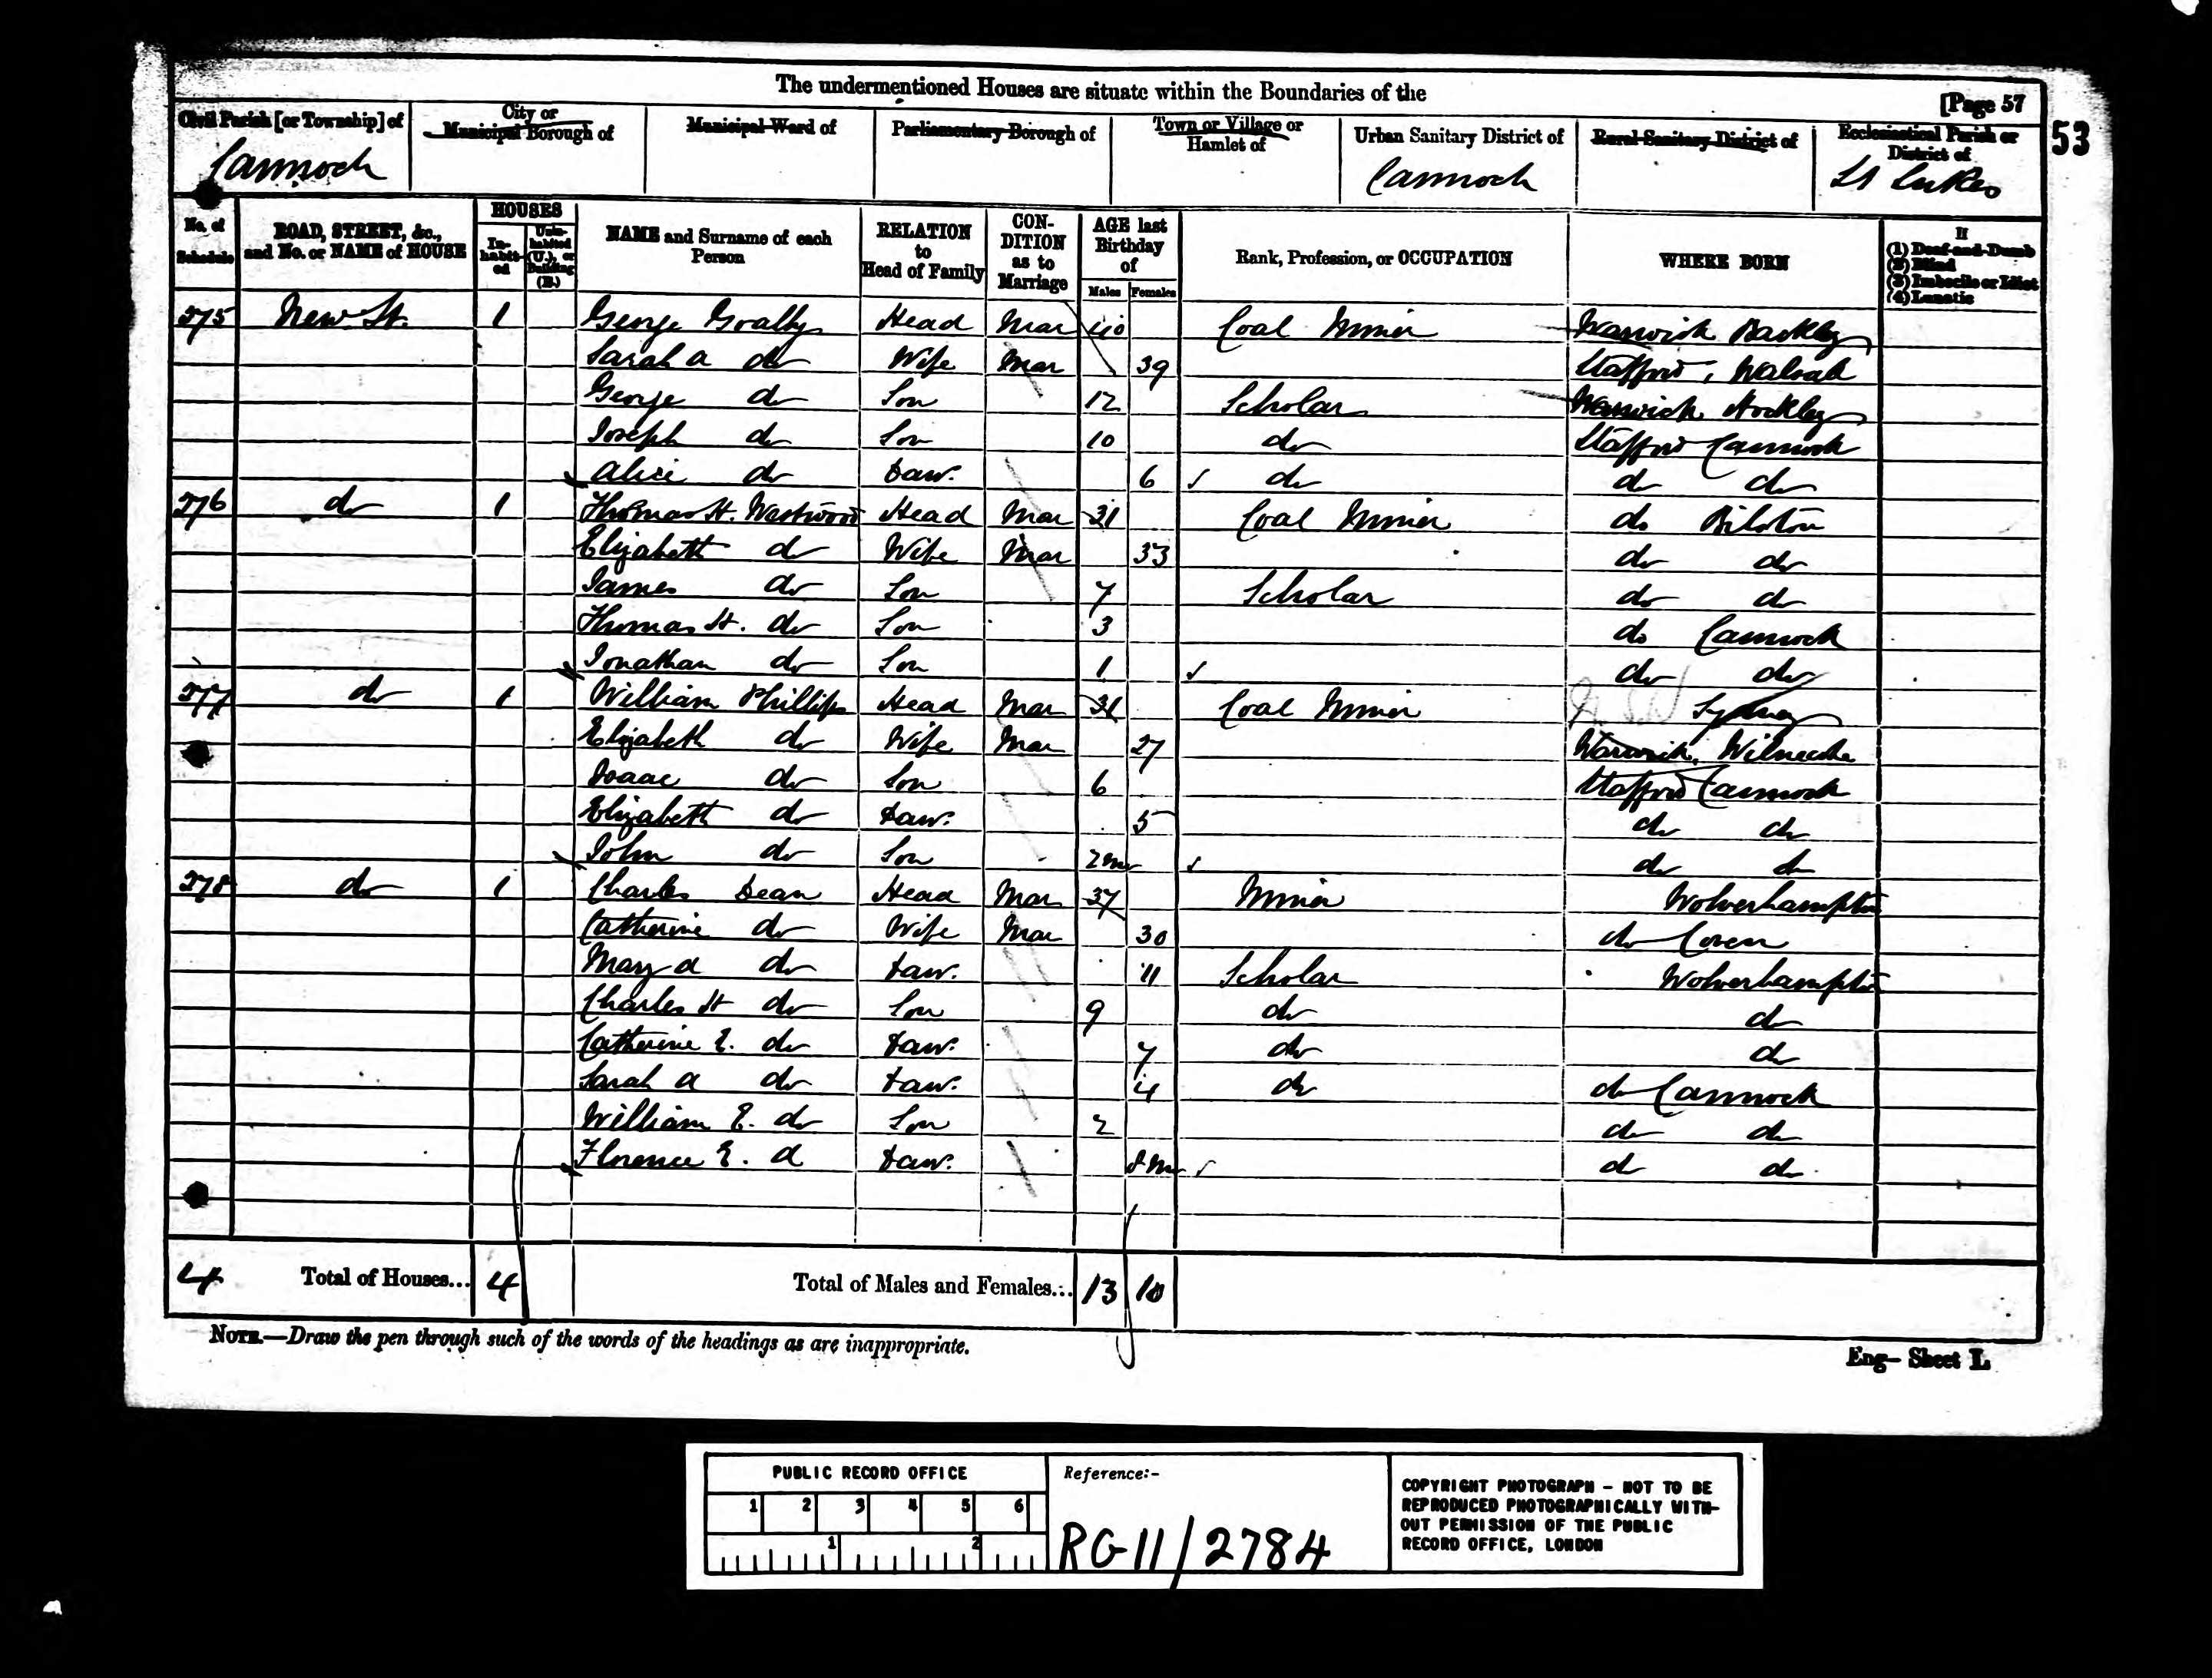 The undermentioned Houses are situate within the Boundaries of the
[Page 57
53
Civil Parish [or Township] of
Cannock
City or Municipal Borough of
Municipal Ward of
Parliamentary Borough of
Town or Village or Hamlet of
Urban Sanitary District of
Cannock
Rural Sanitary District of
Ecclesiastical Parish or District of
St Lukes
No. of Schedule
ROAD, STREET, &c., and No. or NAME of HOUSE
HOUSES
In-habit-ed
Unin-habited (U.), or Building (B.)
NAME and Surname of each Person
RELATION to Head of Family
CON-DITION as to Marriage
AGE last Birthday of
Males Females
Rank, Profession, or OCCUPATION
WHERE BORN
If
(1) Deaf-and-Dumb
(2) Blind
(3) Imbecile or Idiot
(4) Lunatic
275 New St. 1 George Head Mar 40 Coal Miner Warwick
Sarah A do Wife Mar 39 Stafford, Walsall
George do Son 12 Scholar Warwick Hockley
Joseph do Son 10 do Stafford Cannock
Alice do Daur. 6 do do do
276 do 1 Thomas H. Westwood Head Mar 31 Coal Miner do Bilston
Elizabeth do Wife Mar 33 do do
James do Son 7 Scholar do do
Thomas H. do Son 3 do Cannock
Jonathan do Son 1 do do
277 do 1 William Phillips Head Mar 31 Coal Miner N.S.W Sydney
Elizabeth do Wife Mar 27 Warwick, Wilnecote
Isaac do Son 6 Stafford Cannock
Elizabeth do Daur. 5 do do
John do Son 2 m do do
278 do 1 Charles Dean Head Mar 37 Miner Wolverhampton
Catherine do Wife Mar 30 do Coven
Mary A do Daur. 11 Scholar Wolverhampton
Charles H do Son 9 do do
Catherine E. do Daur. 7 do do
Sarah A do Daur. 4 do do Cannock
William E. do Son 2 do do
Florence E. d Daur. 8 m do do
4 Total of Houses... 4 Total of Males and Females... 13 10
NOTE.—Draw the pen through such of the words of the headings as are inappropriate.
Eng— Sheet L
PUBLIC RECORD OFFICE
1 2 3 4 5 6
1 2
Reference:-
RG 11/2784
COPYRIGHT PHOTOGRAPH - NOT TO BE
REPRODUCED PHOTOGRAPHICALLY WITH-
OUT PERMISSION OF THE PUBLIC
RECORD OFFICE, LONDON